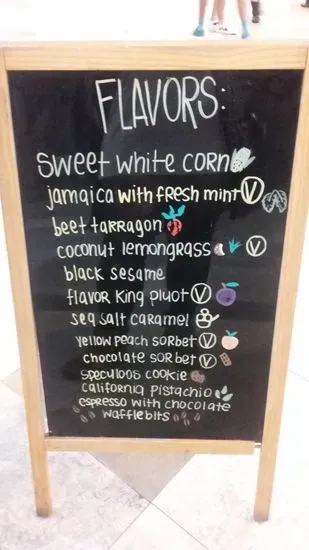 FLAVORS:
sweet white corn
jamaica with fresh mint V
beet tarragon
coconut lemongrass V
black sesame
flavor King pluot V
sea salt caramel
yellow peach sorbet V
chocolate sorbet V
speculoos cookie
california pistachio
espresso with chocolate
wafflebits